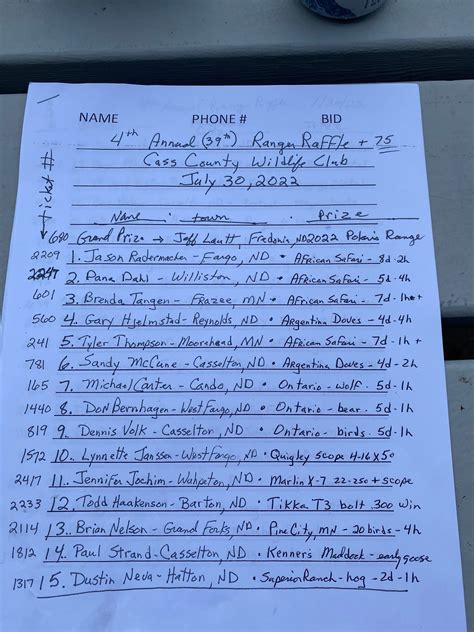 NAME PHONE # BID
4th Annual (39th) Ranger Raffle + 75
Cass County Wildlife Club
July 30, 2022
ticket #
Name · town · Prize
680 Grand Prize → Jeff Lautt, Fredonia, ND 2022 Polaris Range
2209 1. Jason Radermacher - Fargo, ND • African Safari - 8d-2h
2247 2. Dana Dahl - Williston, ND • African Safari - 5d-4h
601 3. Brenda Tangen - Frazee, MN • African Safari - 7d-1h+
560 4. Gary Hjelmstad - Reynolds, ND • Argentina Doves - 4d-4h
241 5. Tyler Thompson - Moorehead, MN • African Safari - 7d-1h+
781 6. Sandy McCune - Casselton, ND • Argentina Doves - 4d-2h
165 7. Michael Carter - Cando, ND • Ontario - wolf. 5d-1h
1440 8. Don Bernhagen - West Fargo, ND • Ontario - bear. 5d-1h
819 9. Dennis Volk - Casselton, ND • Ontario - birds. 5d-1h
1572 10. Lynnette Janssen - West Fargo, ND • Quigley scope 4-16x50
2417 11. Jennifer Jochim - Wahpeton, ND • Marlin X-7 22-250 + scope
2233 12. Todd Haakenson - Barton, ND • Tikka T3 bolt .300 win
2114 13. Brian Nelson - Grand Forks, ND • Pine City, MN - 20 birds - 4h
1812 14. Paul Strand - Casselton, ND • Kenner's Mudduck - early goose
1317 15. Dustin Neva - Hatton, ND • Superior Ranch - hog - 2d-1h